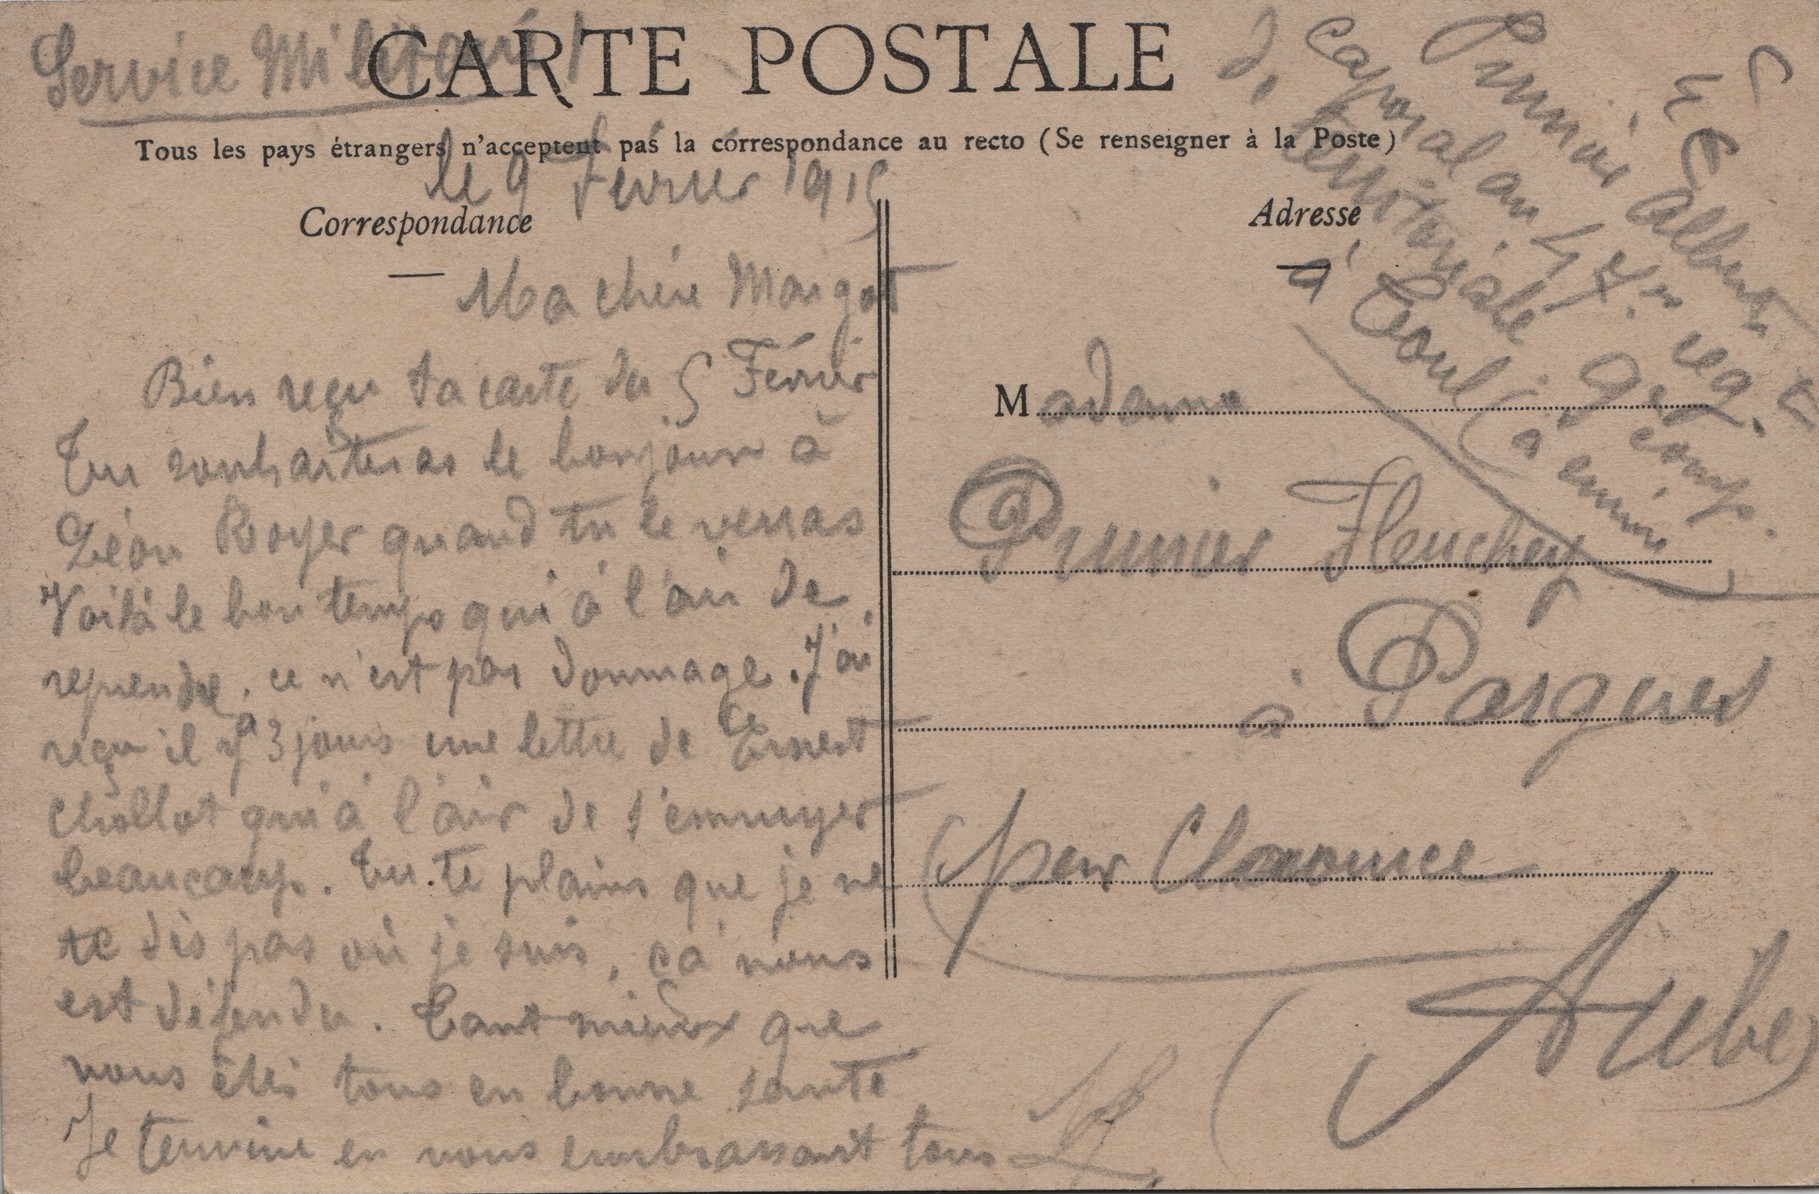 Service Militaire
CARTE POSTALE
Tous les pays étrangers n'acceptent pas la correspondance au recto (Se renseigner à la Poste)
le 9 Février 1915
Correspondance
Ma chère Margot
Bien reçu ta carte du 5 Février
Tu souhaiteras le bonjour à
Léon Royer quand tu le verras
Voilà le bon temps qui à l'air de
reprendre, ce n'est pas dommage. J'ai
reçu il y a 3 jours une lettre de Ernest
Chollot qui à l'air de s'ennuyer
beaucoup. Tu te plains que je ne
te dis pas où je suis, ça nous
est défendu. Tant mieux que
vous êtes tous en bonne santé
Je termine en vous embrassant tous
Adresse
Prunier Albert
caporal au 47e reg.
de territoriale 9e comp.
à Toul
Madame
Prunier Fleuchey
à Pargues
(par Chaource
(Aube)